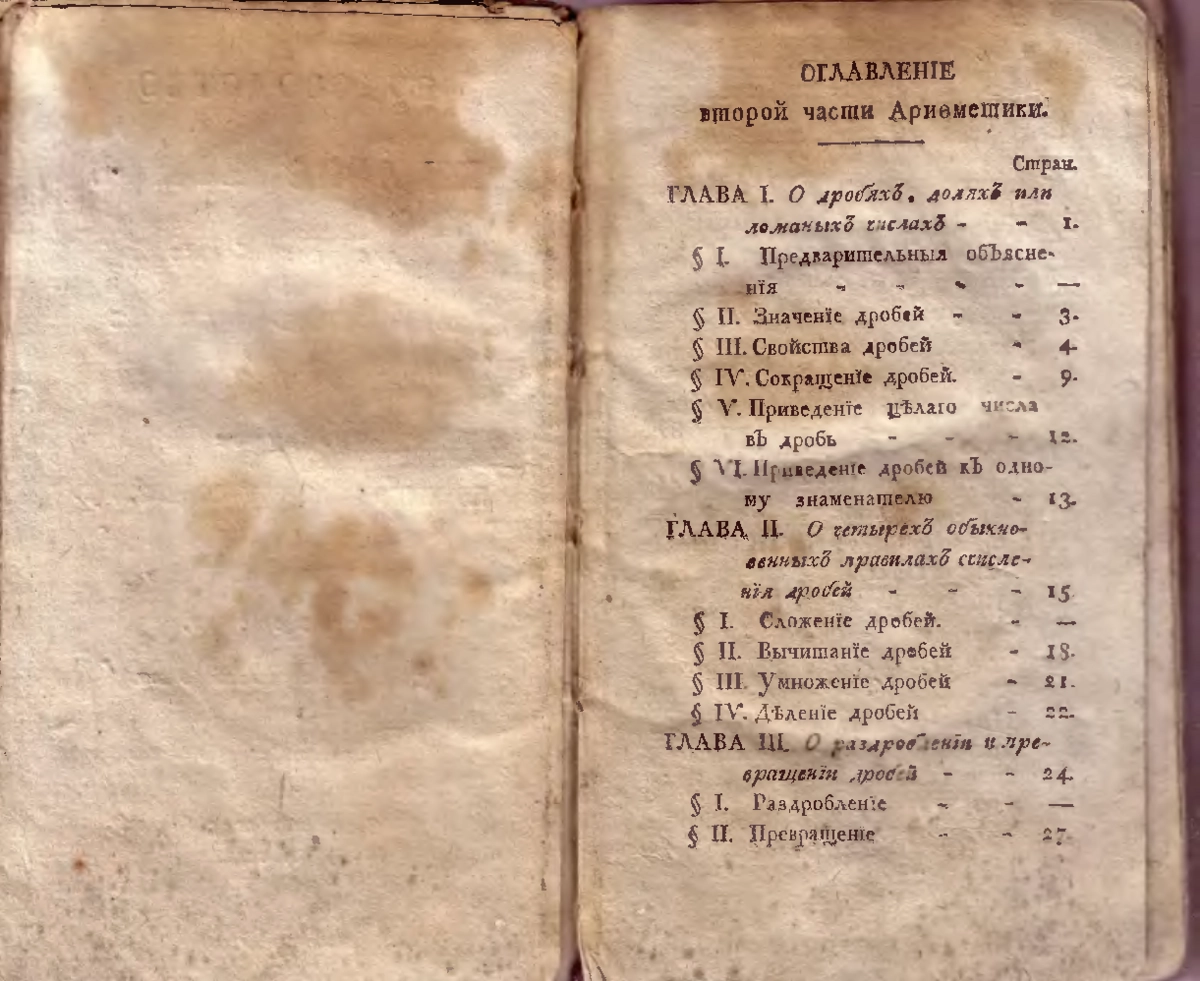 ОГЛАВЛЕНІЕ
второй части Ариѳметики.
Стран.
ГЛАВА I. О дробяхъ, доляхъ или
ломаныхъ числахъ - - 1.
§ I. Предварительныя объясне-
нїя - - - - —
§ II. Значенїе дробей - - 3.
§ III. Свойства дробей - 4.
§ IV. Сокращенїе дробей. - 9.
§ V. Приведенїе цѣлаго числа
въ дробь - - - 12.
§ VI. Приведенїе дробей къ одно-
му знаменателю - 13.
ГЛАВА II. О четырехъ обыкно-
венныхъ правилахъ счисле-
нїя дробей - - - 15
§ I. Сложенїе дробей. - —
§ II. Вычитанїе дробей - 18.
§ III. Умноженїе дробей - 21.
§ IV. Дѣленїе дробей - 22.
ГЛАВА III. О раздробленїи и пре-
вращенїи дробей - - 24.
§ I. Раздробленїе - - —
§ II. Превращенїе - - 27.